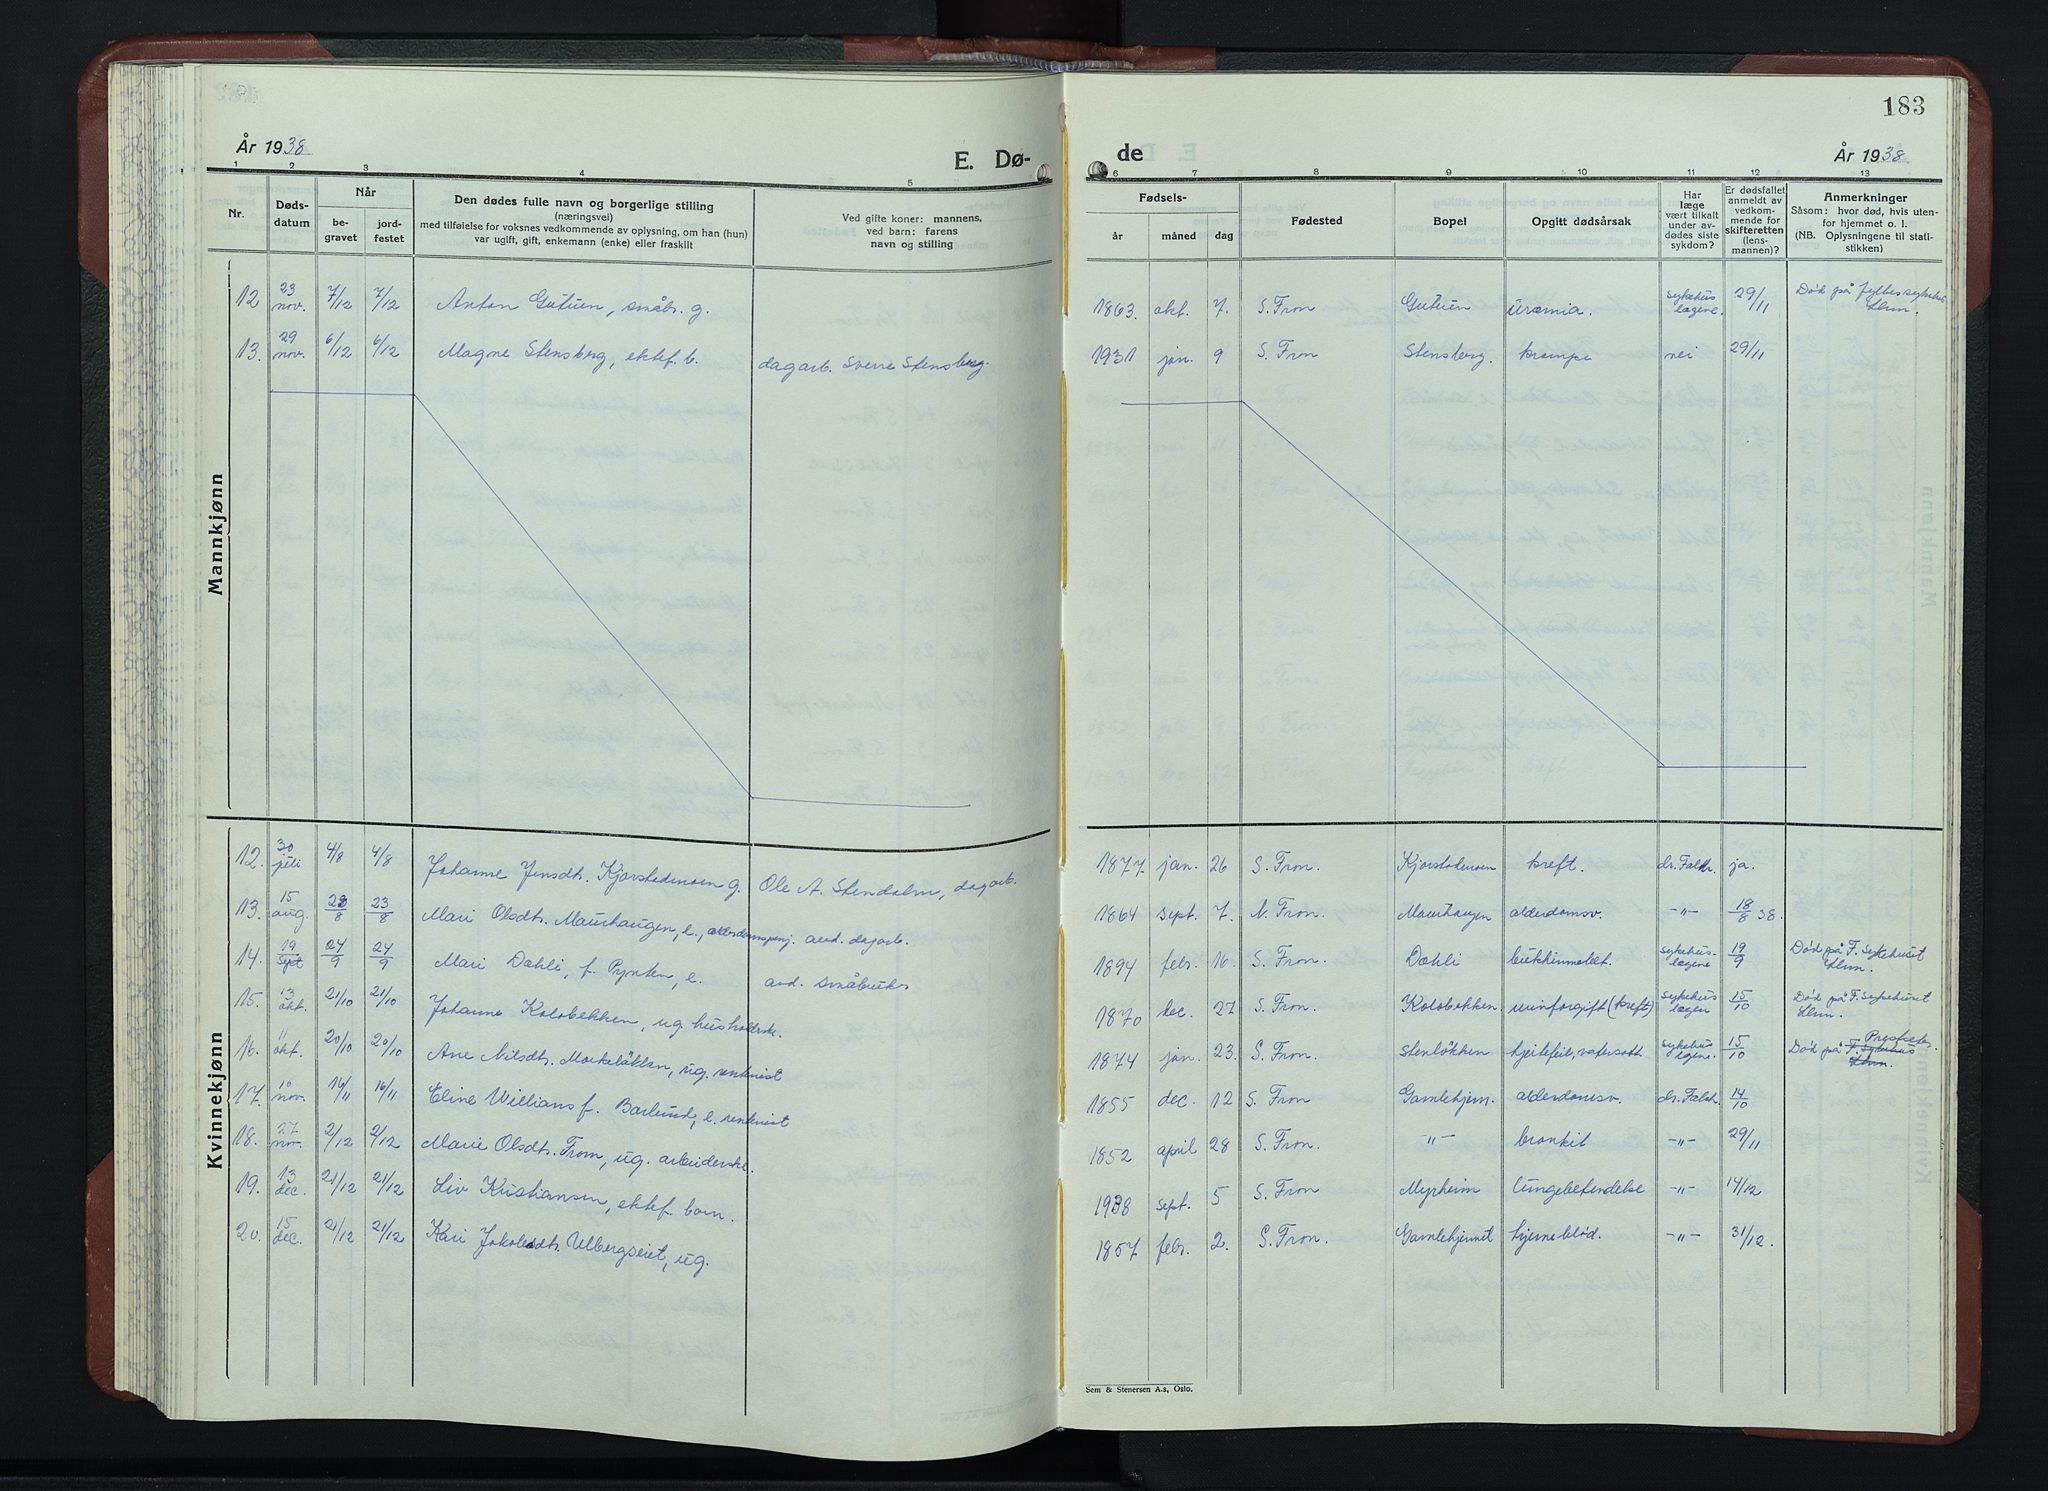 183
År 1938
E. Dø-
de
År 1938.
1 2 3 4 5 6 7 8 9 10 11 12 13
Nr.
Døds-
datum
Når
be-
gravet
jord-
festet
Den dødes fulle navn og borgerlige stilling
(næringsvei)
med tilføielse for voksnes vedkommende av oplysning, om han (hun)
var ugift, gift, enkemann (enke) eller fraskilt
Ved gifte koner: mannens,
ved barn: farens
navn og stilling
Fødsels-
år måned dag
Fødested
Bopel
Opgitt dødsårsak
Har
læge
vært tilkalt
under av-
dødes siste
sykdom?
Er dødsfallet
anmeldt av
vedkom-
mende for
skifteretten
(lens-
mannen)?
Anmerkninger
Såsom: hvor død, hvis uten-
for hjemmet o. l.
(NB. Oplysningene til stati-
stikken)
Mannkjønn
12 23 nov. 7/12 7/12 Anton Gutuen, småbr. g. 1863. okt. 7. S. Fron Gutuen uræmia. sykehus lægene. 29/11 Død på fylkessykehus Lhm.
13. 29 nov. 6/12 6/12 Magne Stensberg, ektef. b. dagarb. Sverre Stensberg. 1931 jan. 9 S. Fron Stensberg. krampe nei 29/11
Kvinnekjønn
12. 30 juli 4/8 4/8 Johanne Jensdt. Kjorstadmoen g. Ole A. Stendalen, dagarb. 1877. jan. 26 S. Fron. Kjorstadmoen kreft. dr. Falch. ja.
13. 15 aug. 23/8 23/8 Mari Olsdt. Mauuhaugen, e., alderdomspenj. avd. dagarb. 1864 sept. 7. N. Fron. Mauuhaugen alderdomsv. -"- 18/8 38.
14. 19 sept 24/9 24/9 Mari Dæhli, f. Pynten, e. avd. småbruker 1894 febr. 16. S. Fron. Dæhli bukhinnebet. sykehus-lægene 19/9 Død på F. sykehuset Lhm.
15. 13 okt. 21/10 21/10 Johanne Kolobekken, ug. husholderske. 1870 dec. 27 S. Fron. Kolobekken. urinforgift (kreft) sykehus lægen 15/10 Død på F. sykehuset Lhm.
16. 11 okt. 20/10 20/10 Ane Nilsdt. Morkeløkken, ug. rentenist 1874 jan. 23. S. Fron. Stenløkken hjertefeil, vatersott sykehus legene. 15/10 Død på F. Sykehus Lhm. Prestseter.
17. 10 nov. 16/11 16/11 Eline Willians f. Barlund, e. rentenist 1855 dec. 12 S. Fron Gamlehjem. alderdomsv. dr. Falch. 14/10
18. 27 nov. 2/12 2/12 Marie Olsdt. From, ug. arbeiderske. 1852 april 28 S. Fron. -"- bronkit -"- 29/11
19. 13 dec. 21/12 21/12 Liv Kristiansen, ektef. barn. 1938 sept. 5 S. Fron Myrheim lungebetendelse -"- 14/12
20. 15 dec. 21/12 21/12 Kari Jakobsdt. Ulbergseiet, ug. 1857 febr. 2. S. Fron. Gamlehjemmet hjerneblød. -"- 31/12.
Sem & Stenersen A.s, Oslo.